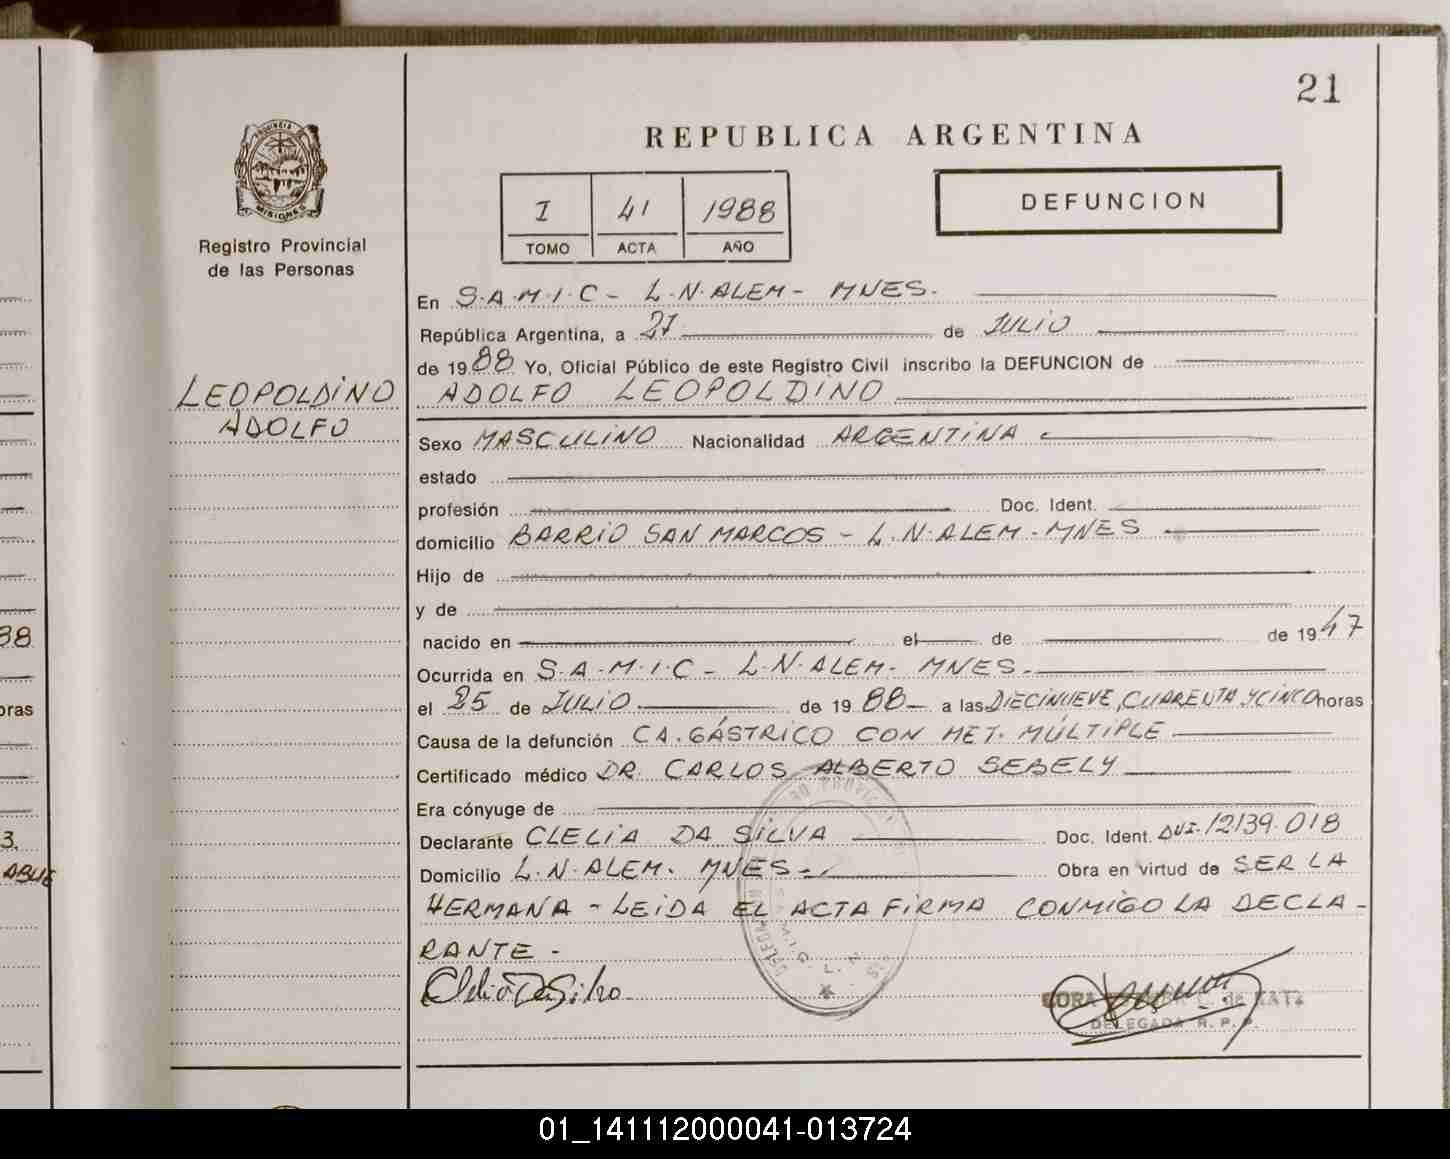 21
REPUBLICA ARGENTINA
PROVINCIA DE
MISIONES
Registro Provincial
de las Personas
I 41 1988
TOMO ACTA AÑO
DEFUNCION
LEOPOLDINO
ADOLFO
En S.A.M.I.C - L.N.ALEM - MNES.
República Argentina, a 27 de JULIO
de 1988 Yo, Oficial Público de este Registro Civil inscribo la DEFUNCION de
ADOLFO LEOPOLDINO
Sexo MASCULINO Nacionalidad ARGENTINA
estado
profesión Doc. Ident.
domicilio BARRIO SAN MARCOS - L.N.ALEM - MNES
Hijo de
y de
nacido en el de de 1947
Ocurrida en S.A.M.I.C - L.N.ALEM - MNES.
el 25 de JULIO de 1988 a las DIECINUEVE, CUARENTA Y CINCO horas
Causa de la defunción CA. GÁSTRICO CON MET. MÚLTIPLE
Certificado médico DR. CARLOS ALBERTO SEBELY
Era cónyuge de
Declarante CLELIA DA SILVA Doc. Ident. DNI. 12139.018
Domicilio L.N.ALEM. MNES. Obra en virtud de SER LA
HERMANA - LEIDA EL ACTA FIRMA CONMIGO LA DECLA-
RANTE -
Clelia Da Silva
DELEGADA R. P. P.
38
oras
3.
01_141112000041-013724